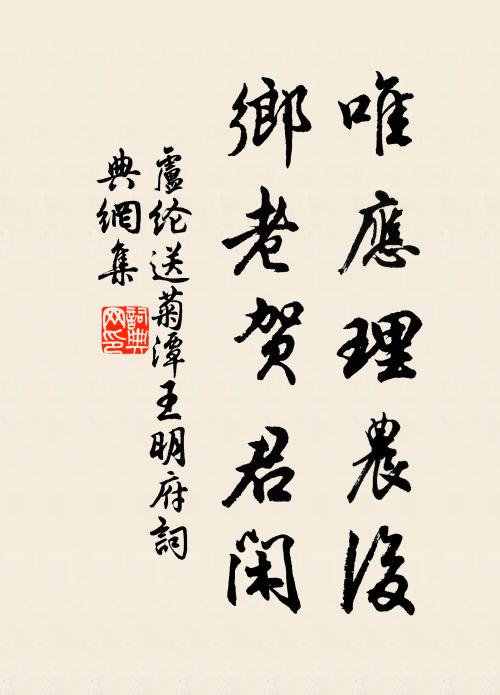 唯應理農後
鄉老贺君閑
盧纶送菊潭王明府詞
典網集
詞典
网印